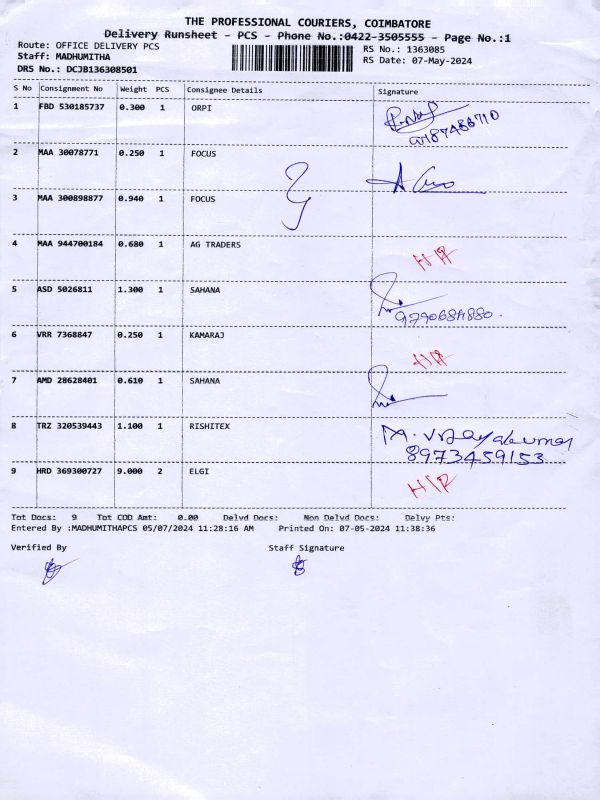 THE PROFESSIONAL COURIERS, COIMBATORE
Delivery Runsheet - PCS - Phone No.:0422-3505555 - Page No.:1
Route: OFFICE DELIVERY PCS
Staff: MADHUMITHA
DRS No.: DCJB136308501
RS No.: 1363085
RS Date: 07-May-2024
S No Consignment No Weight PCS Consignee Details Signature
1 FBD 530185737 0.300 1 ORPI
2 MAA 30078771 0.250 1 FOCUS
3 MAA 300898877 0.940 1 FOCUS
4 MAA 944700184 0.680 1 AG TRADERS
5 ASD 5026811 1.300 1 SAHANA
9790684880.
6 VRR 7368847 0.250 1 KAMARAJ
7 AMD 28628401 0.610 1 SAHANA
8 TRZ 320539443 1.100 1 RISHITEX
8973459153
9 HRD 369300727 9.000 2 ELGI
Tot Docs: 9 Tot COD Amt: 0.00 Delvd Docs: Non Delvd Docs: Delvy Pts:
Entered By :MADHUMITHAPCS 05/07/2024 11:28:16 AM Printed On: 07-05-2024 11:38:36
Verified By Staff Signature